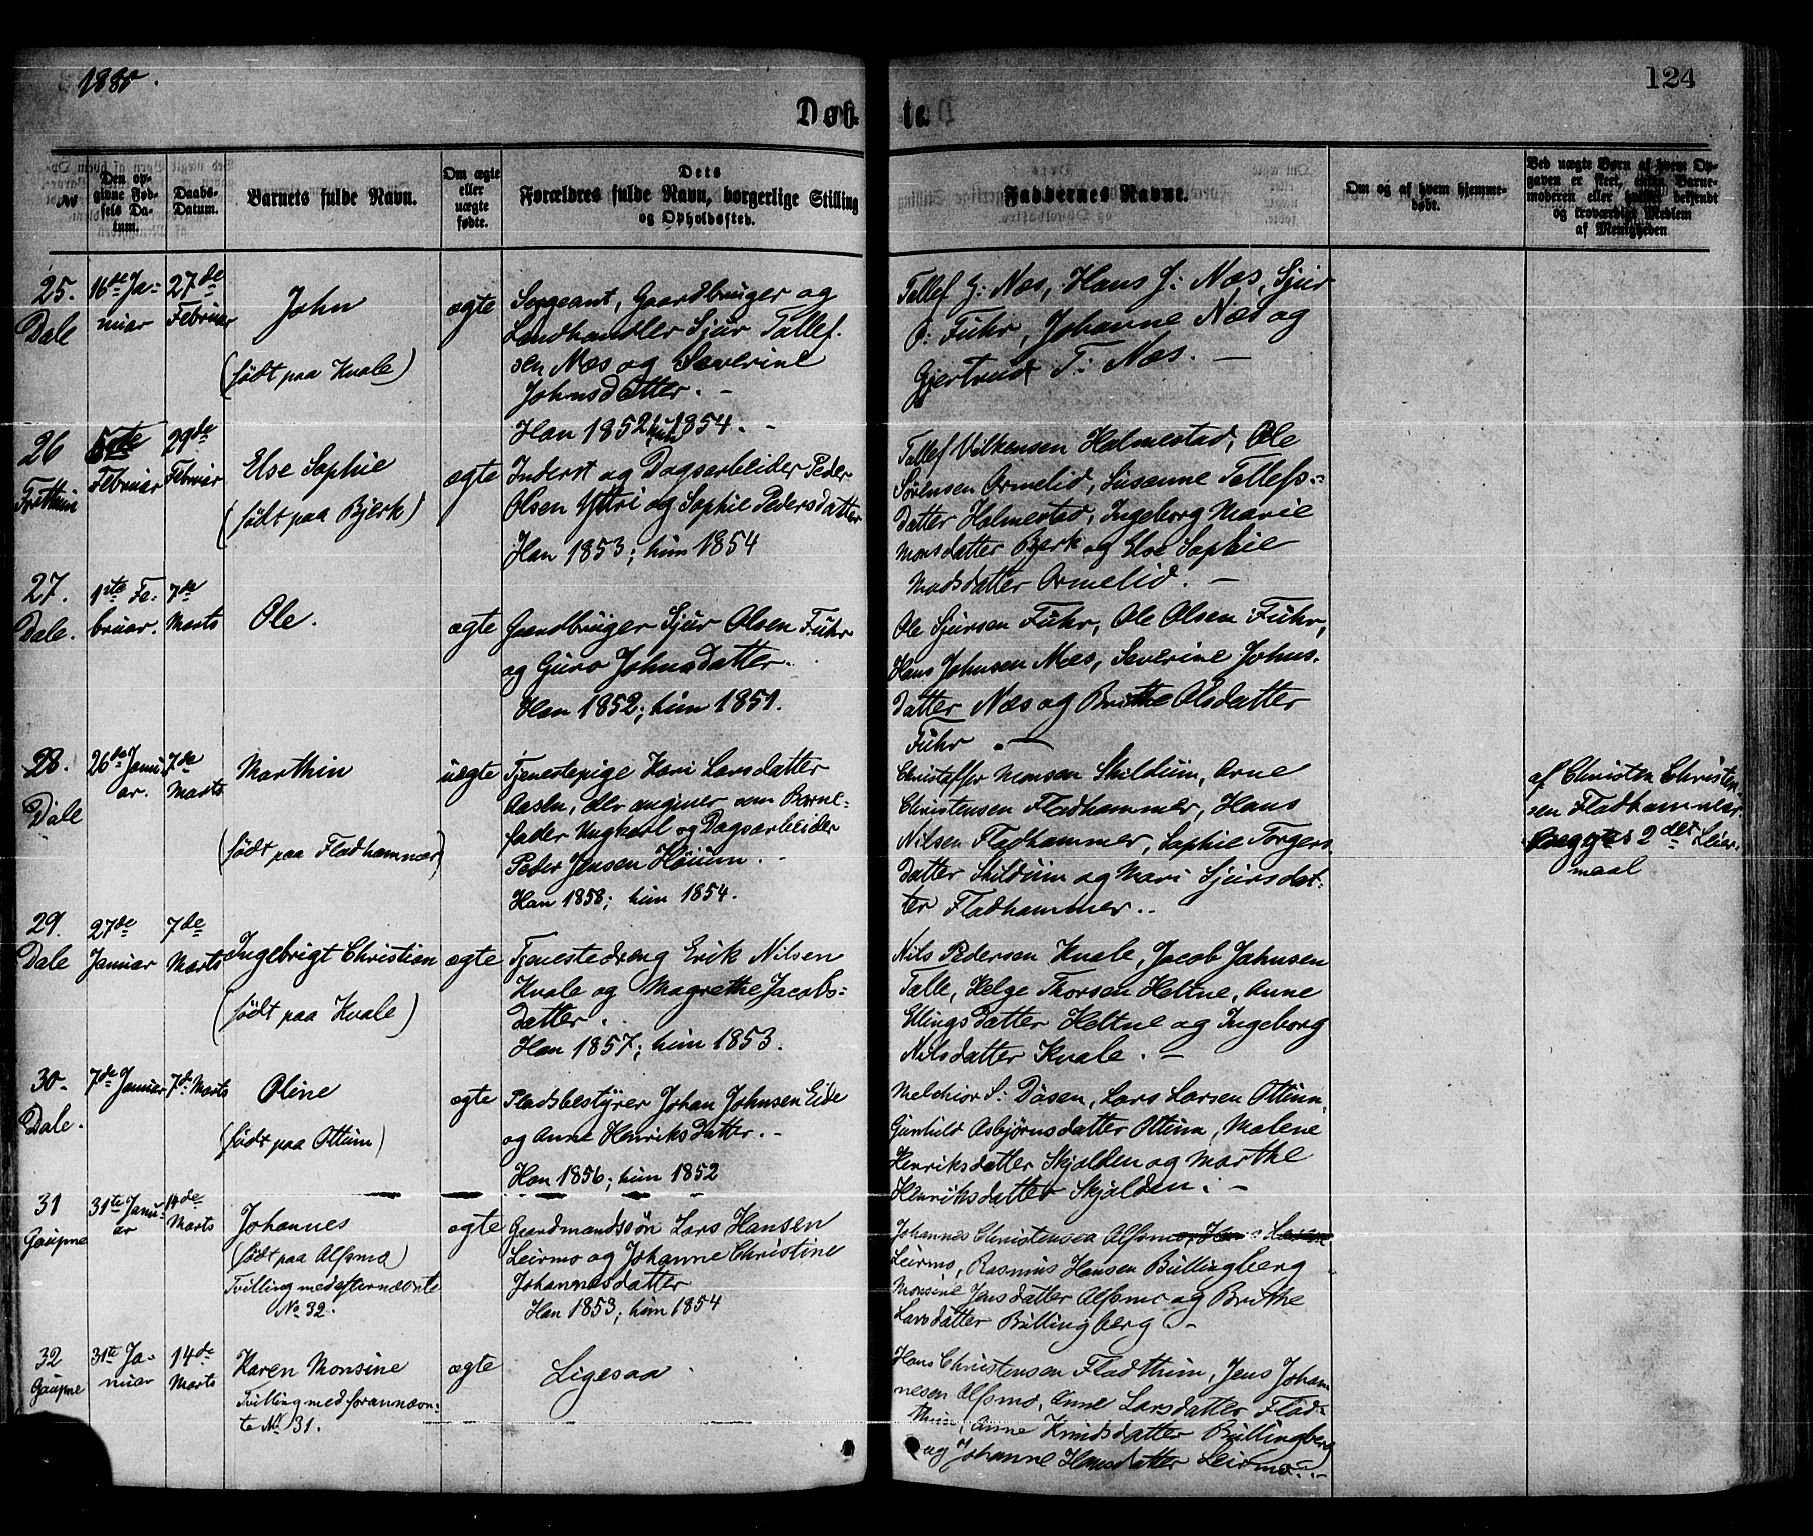 1880.
124
Døbte
№
Den opgivne Fødsels Datum.
Daabs-Datum.
Barnets fulde Navn.
Om ægte eller uægte fødte.
Dets Forældres fulde Navn, borgerlige Stilling og Opholdssted.
Faddernes Navne.
Om og af hvem hjemmedøbt.
Ved uægte Børn af hvem Opgaven er skeet, enten Barnemoderen eller hvilket bekjendt og troværdigt Medlem af Menigheden
25.
Dale
16de Ja-
nuar
27de
Februar
John
(født paa Kvale)
ægte
Sergeant, Gaardbruger og
Landhandler Sjur Tollef-
sen Næs og Severine
Johnsdatter. -
Han 1852 hun 1854. -
Tollef G: Næs, Hans J: Næs, Sjur
O: Fuhr, Johanne Næs og
Gjertrud T: Næs. -
26
5te
Februar
29de
Februar
Else Sophie
(født paa Bjerk)
ægte
Inderst og Dagsarbeider Peder
Olsen Yttri og Sophie Pedersdatter
Han 1853; hun 1854
Tollef Villumsen Holmestad, Ole
Sørensen Ormelid, Susanne Tollefs-
datter Holmestad, Ingeborg Marie
Monsdatter Bjerk og Else Sophie
Madsdatter Ormelid. -
27.
Dale.
1ste Fe-
bruar.
7de
Marts
Ole.
ægte
Gaardbruger Sjur Olsen Fuhr
og Guro Johnsdatter.
Han 1852; hun 1851.
Ole Sjursen Fuhr, Ole Olsen Fuhr,
Hans Johnsen Næs, Severine Johns-
datter Næs og Brithe Olsdatter
Fuhr. -
28.
Dale
26de Janu-
ar.
7de
Marts
Marthin
(født paa Fladhammer)
uægte
Tjenestepige Kari Larsdatter
Aasen, der angiver som Barne-
fader Ungkarl og Dagsarbeider
Peder Jensen Høium. -
Han 1858; hun 1854.
Christoffer Monsen Skildum, Arne
Christensen Fladhammer, Hans
Nilsen Fladhammer, Sophie Torgers-
datter Skildum og Mari Sjursdat-
ter Fladhammer..
af Christen Christen-
sen Fladhammer.
Begges 2det Leier-
maal
29.
Dale
27de
Januar
7de
Marts
Ingebrigt Christian
(født paa Kvale)
ægte
Tjenestedreng Erik Nilsen
Kvale og Magrethe Jacobs-
datter.
Han 1857; hun 1853.
Nils Pedersen Kvale, Jacob Johnsen
Talle, Helge Thorsen Heltne, Anne
Ellingsdatter Heltne og Ingeborg
Nilsdatter Kvale. -
30.
Dale.
7de Januar
7de Marts
Oline
(født paa Ottum)
ægte
Pladsbestyrer Johan Johnsen Eide
og Anne Henriksdatter. -
Han 1856; hun 1852
Melchior S: Døsen, Lars Larsen Ottum,
Gunhild Asbjørnsdatter Ottum, Malene
Henriksdatter Skjolden og Marthe
Henriksdatter Skjolden. -
31
Gaupne
31te Janu-
ar
14de
Marts
Johannes
(født paa Alfsmo)
Tvilling med efternævnte
No 32.
ægte
Gaardmandssøn Lars Hansen
Leirmo og Johanne Christine
Johannesdatter
Han 1853; hun 1854
Johannes Christensen Alfsmo, Hans Larsen
Leirmo, Rasmus Hansen Bullingberg
Monsine Jensdatter Alfsmo og Brithe
Larsdatter Bullingberg. -
32
Gaupne
31te Ja-
nuar
14de
Marts
Karen Monsine
Tvilling med forannævn-
te No 31.
ægte
Ligesaa
Hans Christensen Fladthum, Jens Johan-
nesen Alfsmo, Anne Larsdatter Flad-
thum, Anne Knudsdatter Bullingberg
og Johanne Hansdatter Leirmo. -